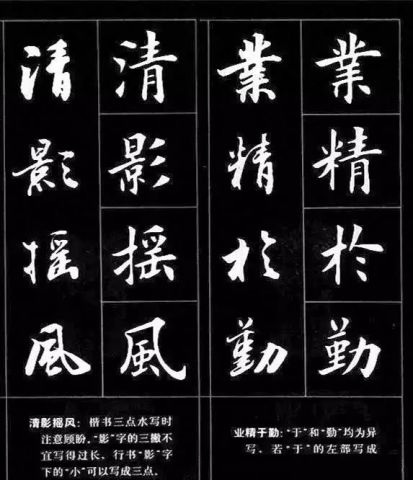 業精於勤
業精於勤
业精于勤：“于”和“勤”均为异
写、若“于”的左部写成
清影摇風
清影摇風
清影摇风：楷书三点水写时
注意顾盼，“影”字的三撇不
宜写得过长、行书“影”字
下的“小”可以写成三点。